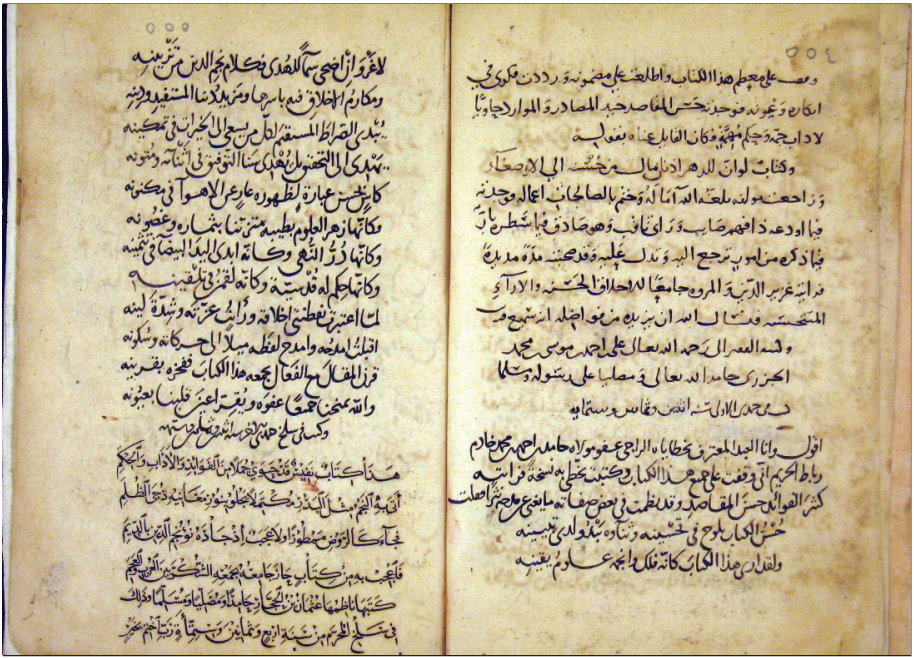 على معظم هذا الكتاب واطلعت على مضمونه ورددت فكري في
ابكاره وعونه فوجدته حسن المقاصد حميد المصادر والموارد حاويا
لآداب جمة وحكم مهمة فكان القايل عناه بقوله
وكتاب لو ان للدهر اذنا مال من حسنه الى الاصغاء
بلغه الله آماله وختم بالصالحات اعماله
فيما اودعه ذا فهم صايب وراي ثاقب وهو صادق فيما سطره
فيما ذكره من امور ترجع اليه وتدل عليه وقد صحبته مدة مديدة
فرايته عزيز الدين والمروه جامعا للاخلاق الحسنه والآراء
المستحسنه الله ان يزيده من فواضله انه سميع
الفقير الى رحمة الله تعالى على احمد بن موسى محمد
الجزري حامدا لله تعالى ومصليا على رسوله ومسلما
جمدى الاولى سنه اثنين وثمانين وستمايه
اقول وانا العبد المعترف بخطاياه الراجي عفو مولاه حامد بن احمد بن محمد خادم
رباط الحريم اني وقفت على جميع هذا الكتاب وكتبت بخطي به نسخة فرايته
كثير الفوائد حسن المقاصد وقد نظمت في بعض صفاته ما يغني عن مدحه نثرا فقلت
حسن الكتاب يلوح في تحسينه وثناؤه يبدو لدى تبيينه
ولقد ارى هذا الكتاب كانه فلك وانجمه علوم يقينه
لا غرو ان اضحى سما للهدى فكلام نجم الدين من تزيينه
ومكارم الاخلاق فيه باسرها ومزيد دنيا المستفيد ودينه
يبدي الصراط المستقيم لكل من يسعى الى الخيرات في تمكينه
يهدي الى التحقيق بل يهدي سنا التوفيق في اثنائه ومتونه
كاس بحسن عبارة لظهوره عار عن الاهوآ في مكنونه
وكانها زهر العلوم بطيبه متزينا بثماره وغصونه
وكانها در النهى وكانه ابدى اليد البيضآ في تثمينه
وكانها حكم له قدسية وكانه لقمن في تلقينه
لما اعترت لفطنتي اخلاقه ورايت عزته وشدة لينه
اقبلت امدحه وامدح لفظه ميلا الى حركاته وسكونه
قرن المقال مع الفعال بجمعه هذا الكتاب ففخره بقرينه
والله يمنحنا جميعا عفوه ويقر اعين قلبنا بعيونه
وكتب في سلخ
هذا كتاب نفيس قد حوى جملا من الفوائد والآداب والحكم
اتى به النجم مثل البدر مكتملا يجلو بنور معانيه دجى الظلم
فجآء كالروض ممطورا ولا عجب اذ جاده نوء نجم الدين بالديم
فاعجب به من كتاب حاز جامعه بجمعه الشكر بين العرب والعجم
كتبها ناظمها عثمان بن الحجاز حامدا ومصليا ومسلما وذلك
في سلخ المحرم من سنة اربع وثمانين وستمائة رب اختم بخير